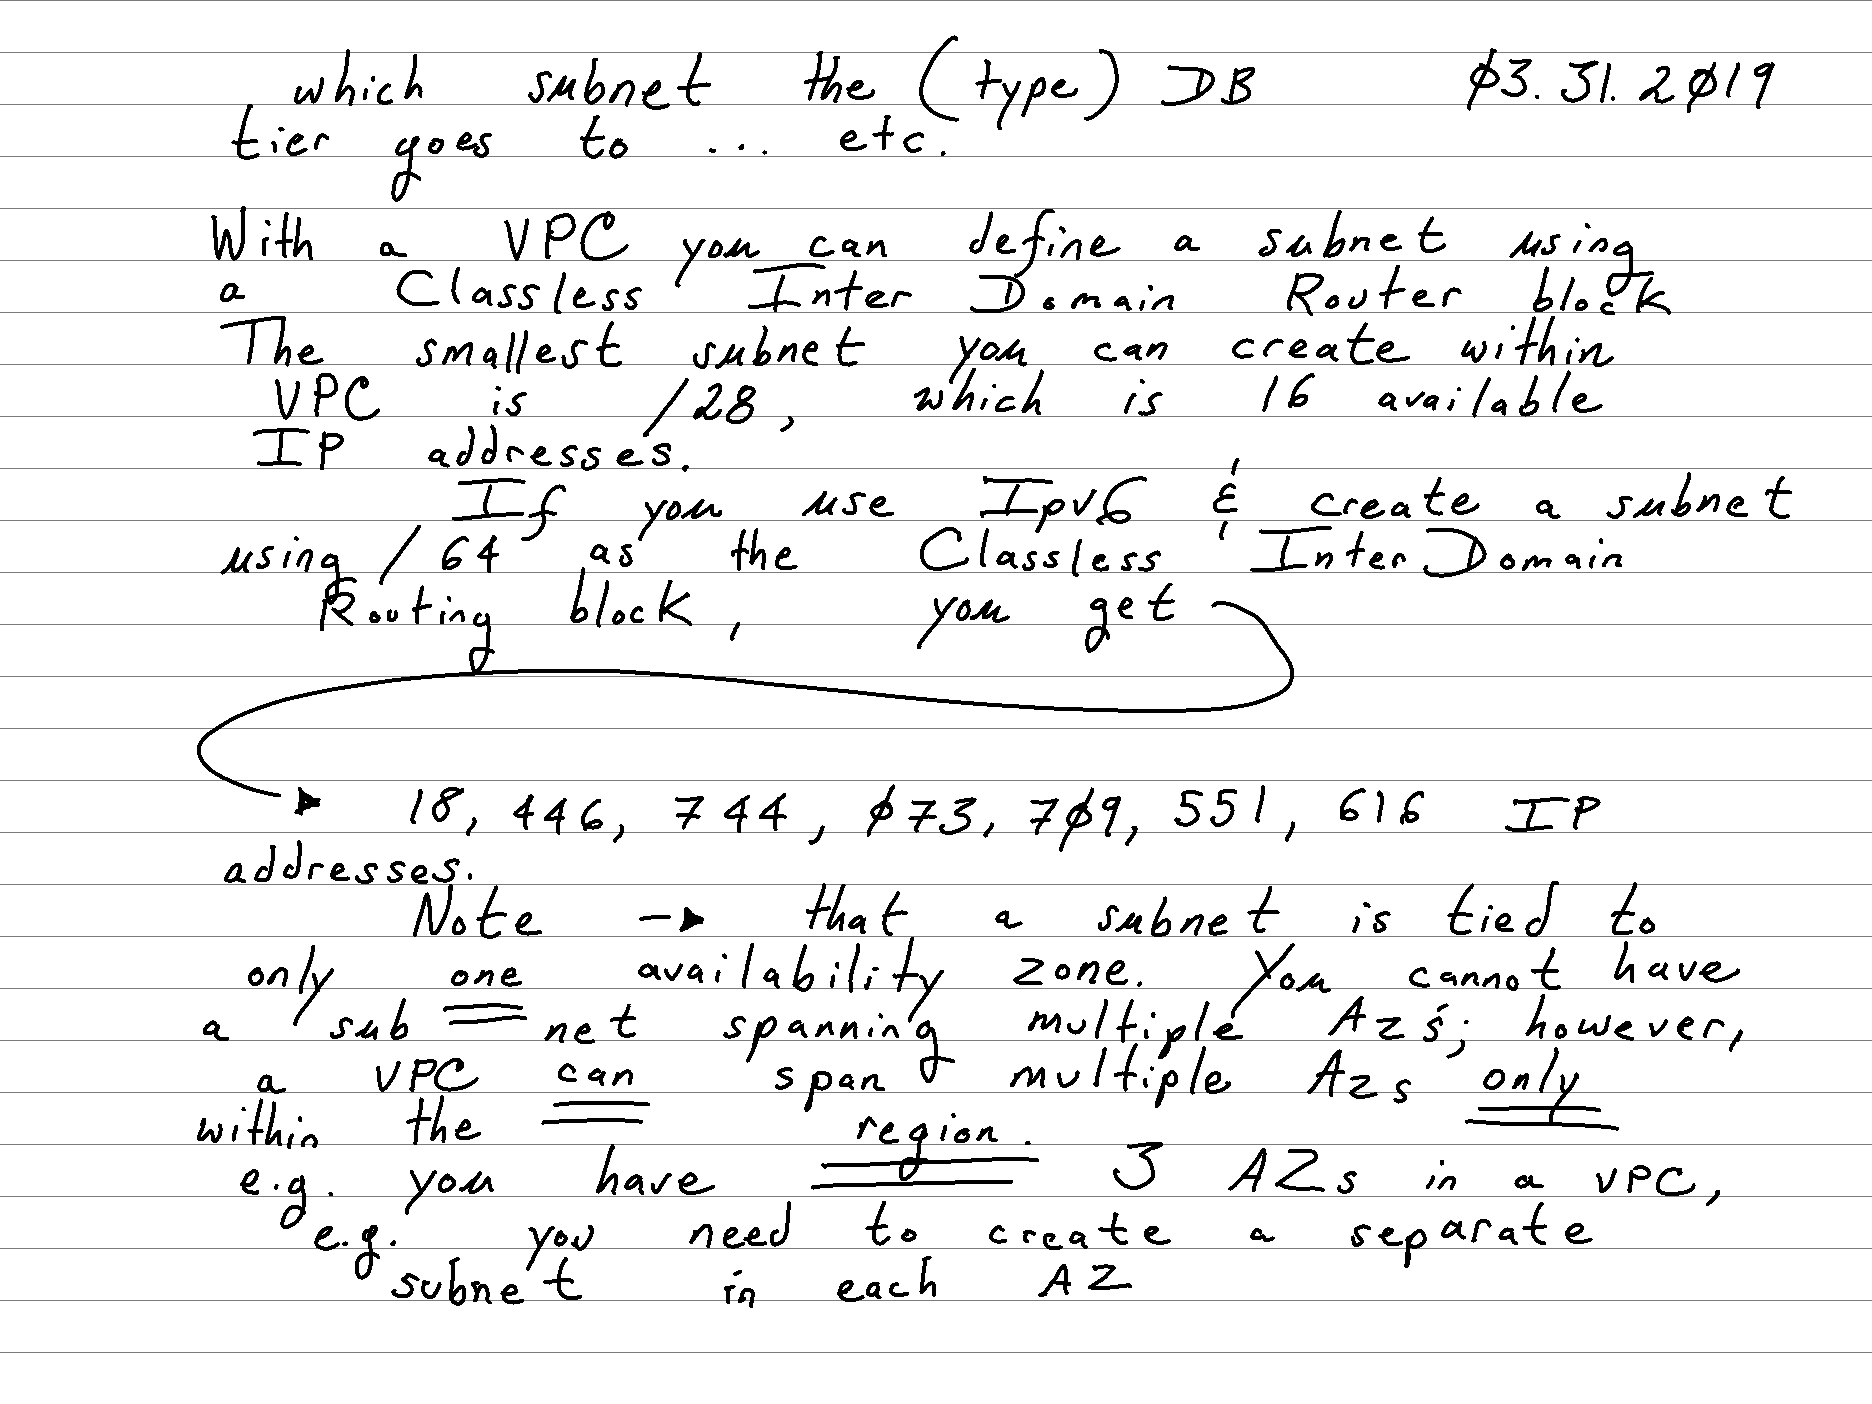 which subnet the (type) DB ø3.31.2ø19
tier goes to ... etc.
With a VPC you can define a subnet using
a Classless Inter Domain Router block
The smallest subnet you can create within
VPC is /28, which is 16 available
IP addresses.
If you use Ipv6 & create a subnet
using /64 as the Classless Inter Domain
Routing block, you get
18, 446, 744, ø73, 7ø9, 551, 616 IP
addresses.
Note → that a subnet is tied to
only one availability zone. You cannot have
a sub net spanning multiple Azs; however,
a VPC can span multiple Azs only
within the region.
e.g. you have 3 AZs in a VPC,
e.g. you need to create a separate
subnet in each AZ